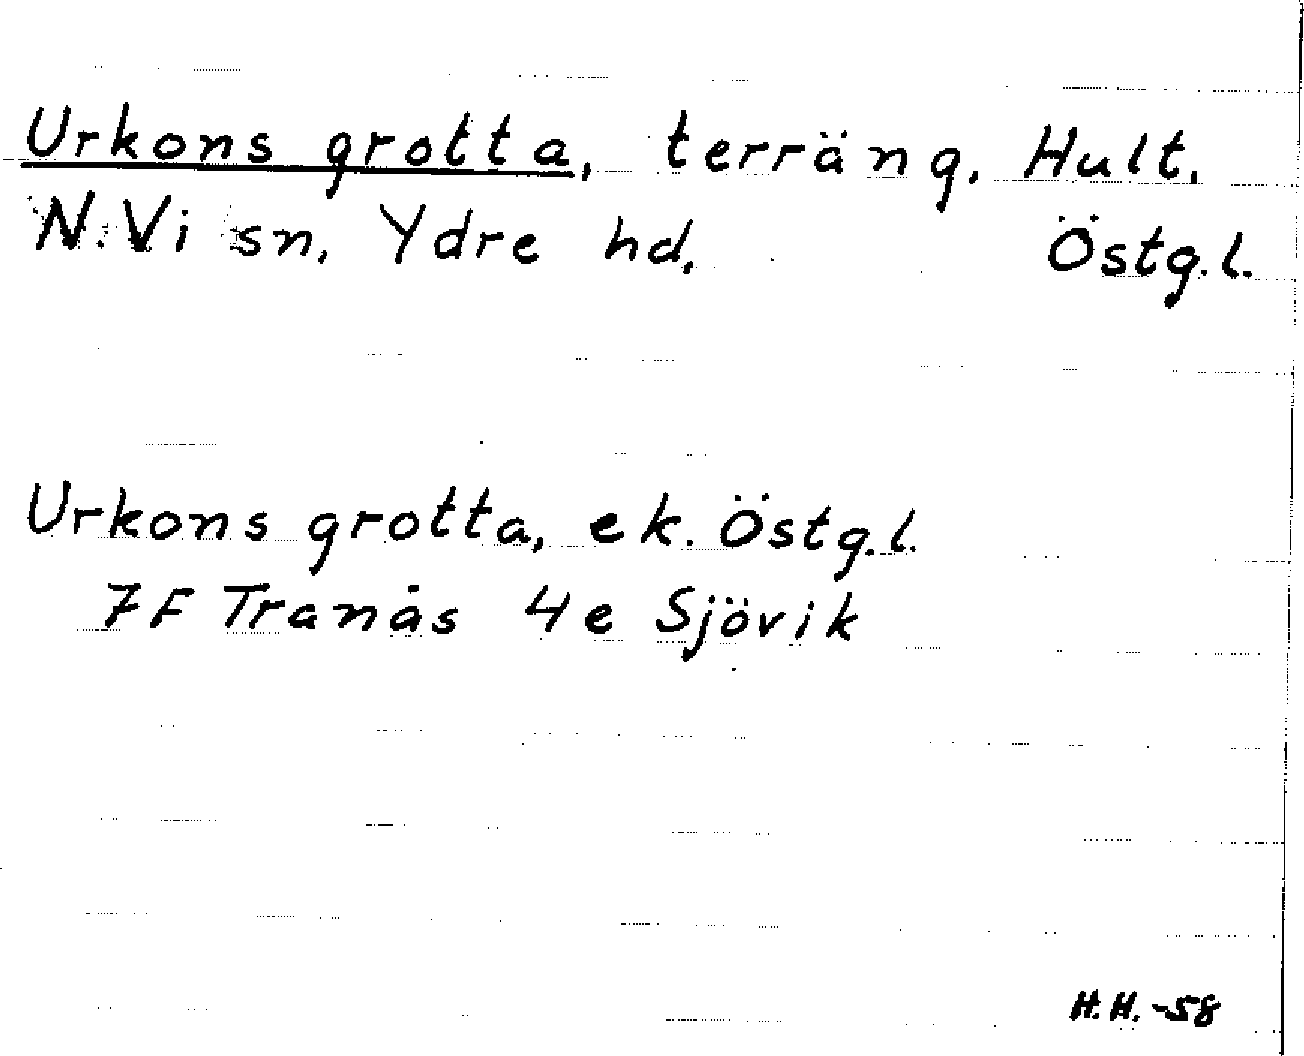 Urkons grotta, terräng, Hult,
N. Vi sn, Ydre hd, Östg.l.
Urkons grotta, ek. Östg.l.
7F Tranås 4e Sjövik
H.H. -58